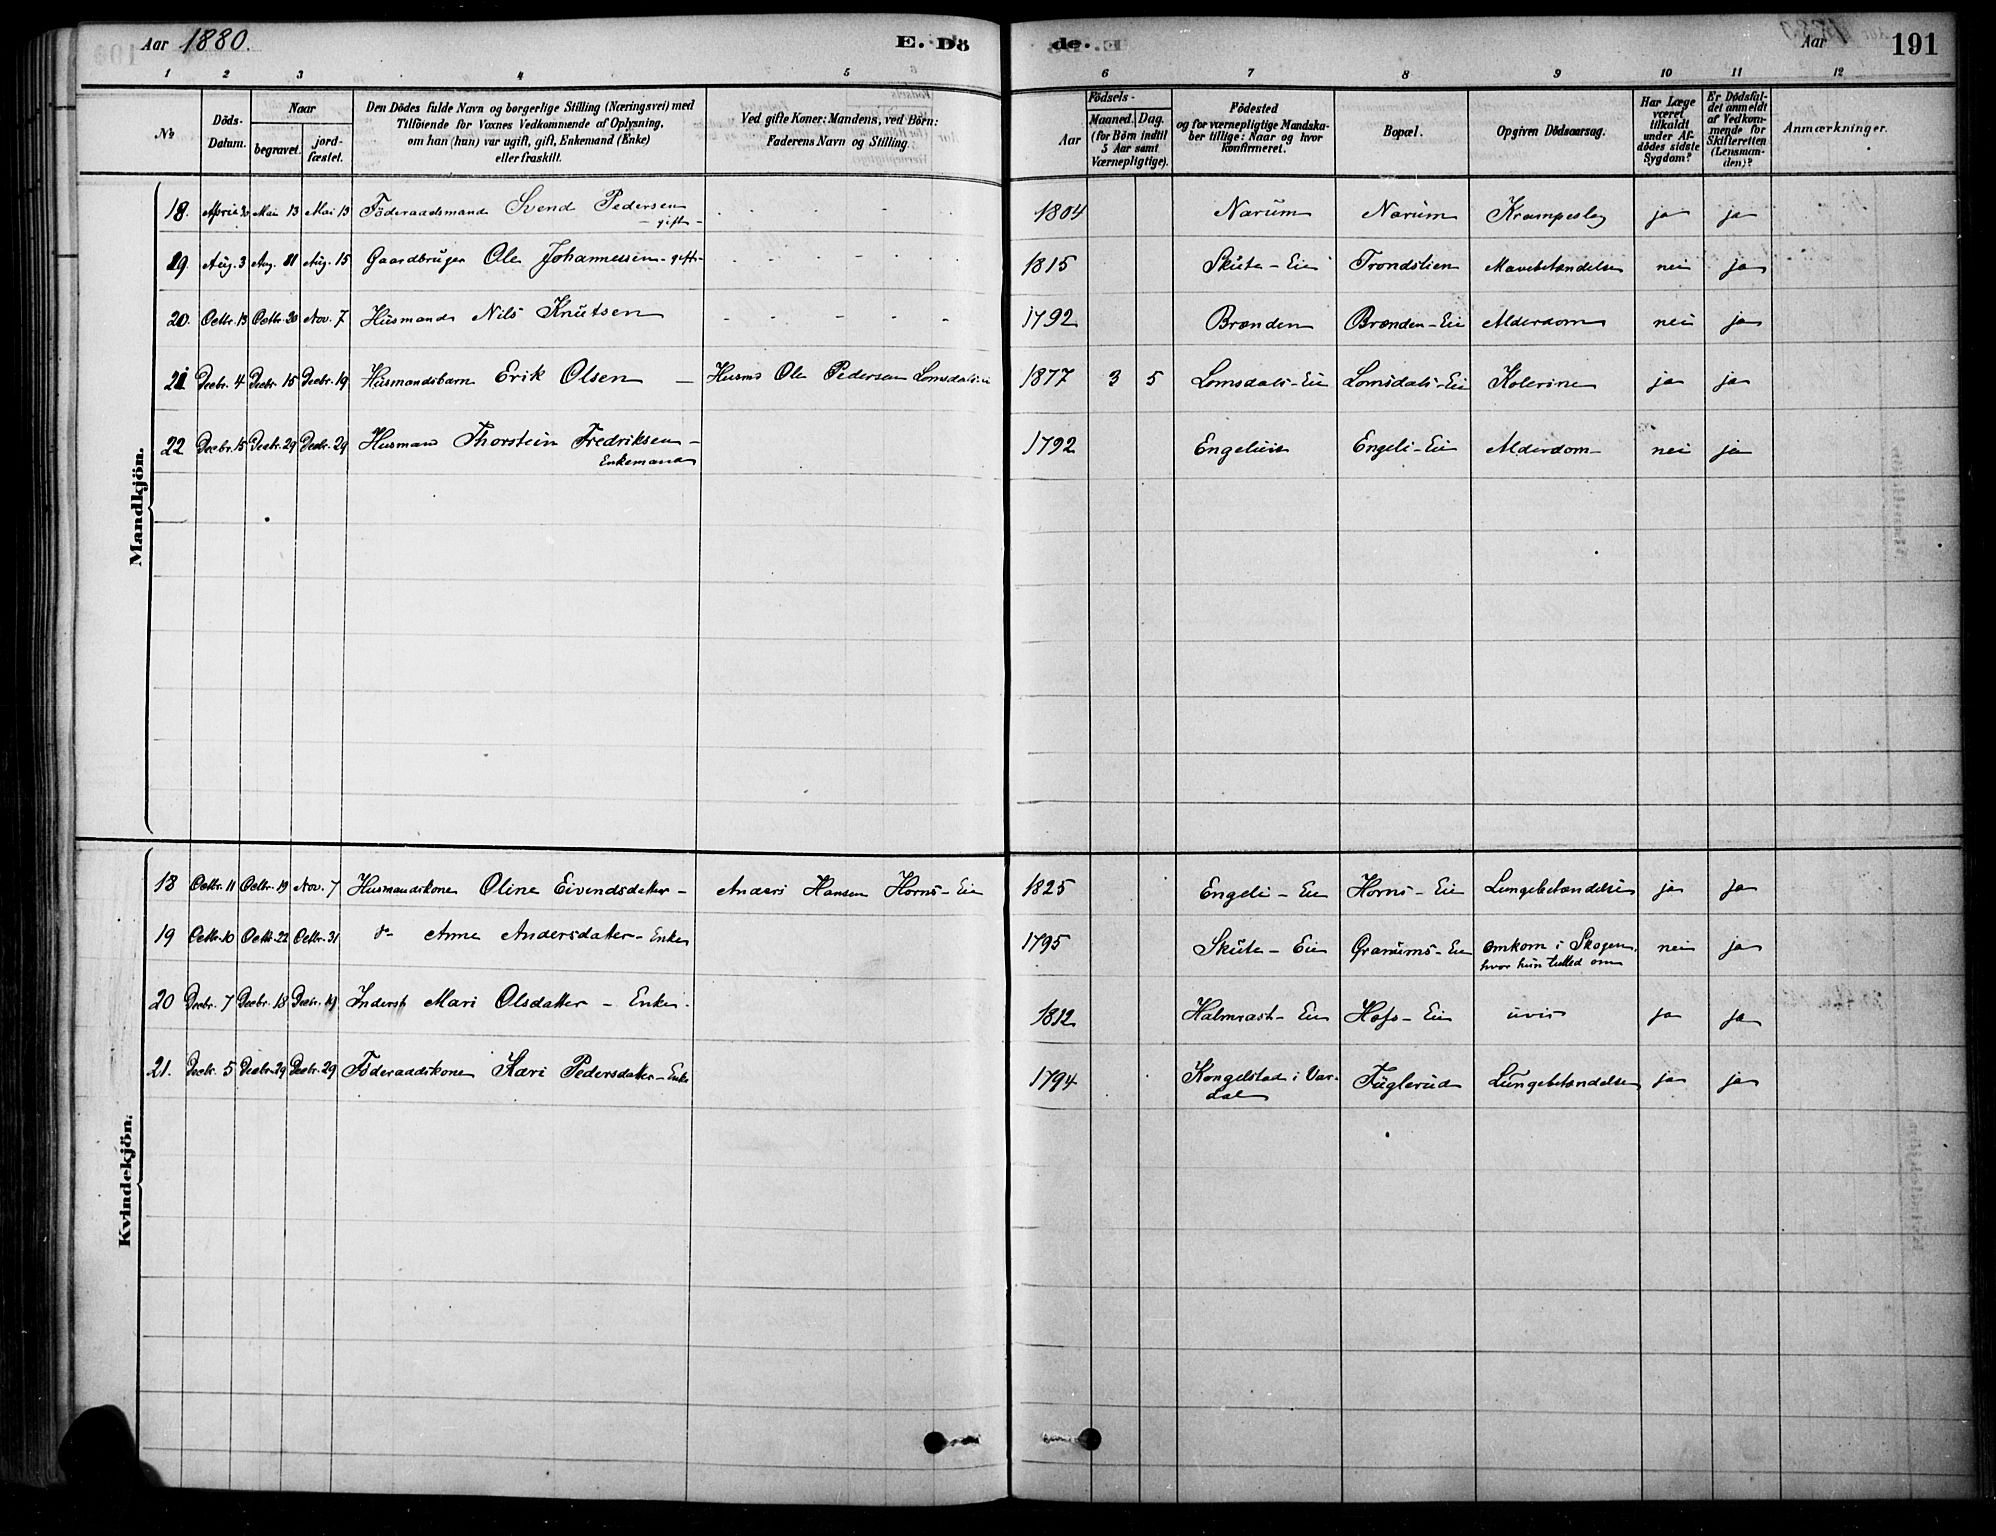 Aar 1880. E. Dö de. Aar 191
1 2 3 4 5 6 7 8 9 10 11 12
No Döds-Datum. Naar begravet. jord-fæstet. Den Dödes fulde Navn og borgerlige Stilling (Næringsvei) med Tilföiende for Voxnes Vedkommende af Oplysning, om han (hun) var ugift, gift, Enkemand (Enke) eller fraskilt. Ved gifte Koner: Mandens, ved Börn: Faderens Navn og Stilling. Födsels- Aar Maaned. Dag. (for Börn indtil 5 Aar samt Værnepligtige). Födested og for værnepligtige Mandskaber tillige: Naar og hvor Konfirmeret. Bopæl. Opgiven Dödsaarsag. Har Læge været tilkaldt under Afdödes sidste Sygdom? Er Dödsfaldet anmeldt af Vedkommende for Skifteretten (Lensmanden)? Anmærkninger.
Mandkjön.
18. April 30 Mai 13 Mai 13 Föderaadsmand Svend Pedersen - gift - 1804 Narum Narum Krampeslag ja ja
19. Aug. 3 Aug. 11 Aug. 15 Gaardbruger Ole Johannessen - gift - 1815 Skute - Eie Trondslien Mavebetændelse nei ja
20. Octbr. 13 Octbr. 20 Nov. 7 Husmand Nils Knutsen 1792 Brænden Brænden - Eie Alderdom nei ja
21 Decbr. 4 Decbr. 15 Decbr. 19 Husmandsbarn Erik Olsen - Husmd Ole Pedersen Lomsdalseie 1877 3 5 Lomsdals - Eie Lomsdals - Eie Kolerine ja ja
22 Decbr. 15 Decbr. 29 Decbr. 29 Husmand Thorstein Fredriksen - Enkemand 1792 Engelieie Engeli - Eie Alderdom - nei ja
Kvindekjön.
18 Octbr. 11 Octbr. 19 Nov. 7 Husmandskone Oline Eivendsdatter - Anders Hansen Horns - Eie 1825 Engeli - Eie Horns - Eie Lungebetændelse ja ja
19 Octbr. 10 Octbr. 22 Octbr. 31 do Anne Andersdatter - Enke 1795 Skute - Eie Granums - Eie omkom i Skogen, hvor hun tulled om nei ja
20 Decbr. 7 Decbr. 18 Decbr. 19 Inderst Mari Olsdatter - Enke. 1812 Halmrast - Eie Hofs - Eie uvis ja ja
21. Decbr. 5 Decbr. 29 Decbr. 29 Föderaadskone Kari Pedersdatter - Enke 1794 Kongelstad i Vardal Fuglerud Lungebetændelse ja ja